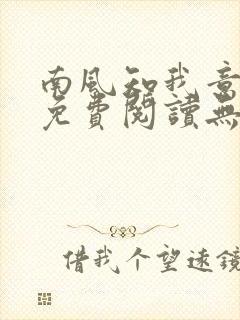 南風知我意
免費閱讀無
借我个望遠鏡